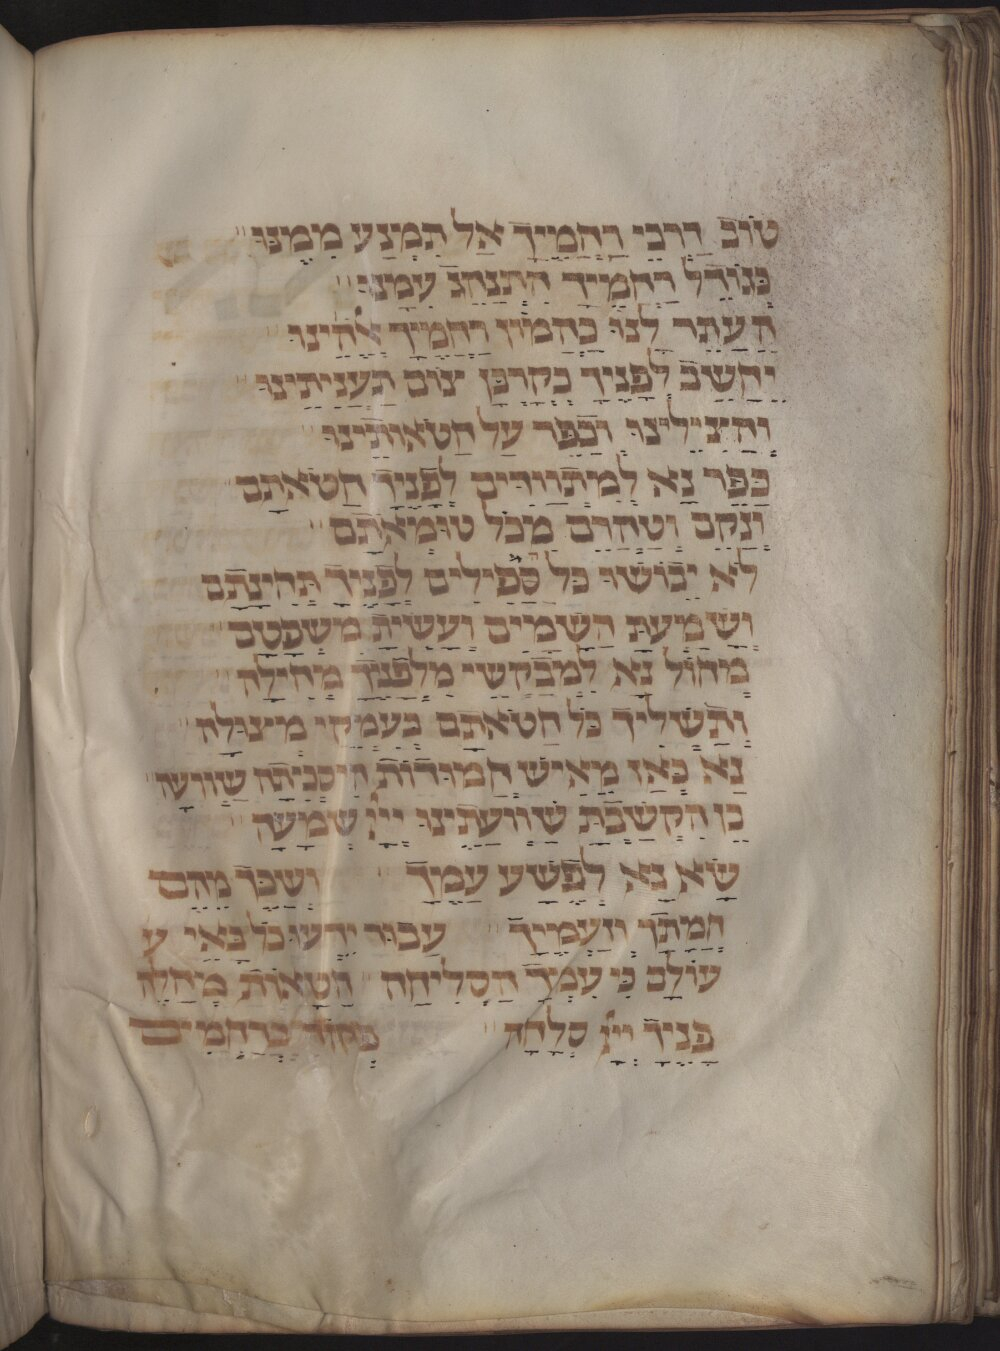 טוֹב דַּרְכֵי רַחֲמֶיךָ אַל תִּמְנַע מִמֶּנּוּ
כְּגוֹדֶל רַחֲמֶיךָ תִּתְנַהֵג עִמָנוּ
הֵעָתֵר לָנוּ כַּהֲמוֹן רַחֲמֶיךָ אֱלֹהֵינוּ
יֵחָשֵׁב לְפָנֶיךָ כְּקָרְבָּן צוֹם תַּעֲנִיתֵינוּ
וְהַצִּילֵינוּ וְכַפֵּר עַל חַטֹּאותֵינוּ
כַּפֵּר נָא לְמִתְוַודִּים לְפָנֶיךָ חַטֹּאתָם
וְנַקֵּם וְטַהֲרֵם מִכָּל טוּמְאָתָם
לֹא יֵבוֹשׁוּ כָּל סֹפִילִים לְפָנֶיךָ תְּחִינָתָם
וְשָׁמַעְתָּ הַשָּׁמַיִם וְעָשִׂיתָ מִשְׁפָּטָם
מְחוֹל נָא לִמְבַקְשֵׁי מִלְּפָנֶיךָ מְחִילָה
וְתַשְׁלִיךְ כָּל חַטֹּאתָם בְּעִמְקֵי מְצוּלָה
נָא כְּאָז מֵאִישׁ חֲמוּדוֹת הִסְכַּתָּה שַׁוְועָה
כֵּן הִקְשַׁבְתָּ שַׁוְועָתֵינוּ יְיָ שְׁמָעָה
שָׂא נָא לְפֶשַׁע עַמֶּךָ וְשַׁכֵּךְ מֵהֶם
חֲמָתְךָ וְזַעְמֶיךָ עֲבוּר יֵדְעוּ כָל בָּאֵי ע
עוֹלָם כִּי עִמְּךָ הַסְּלִיחָה חַטָאוֹת מְחַלֶּה
פָּנֶיךָ יְיָ סְלָחָה בְּרַחֲמִים